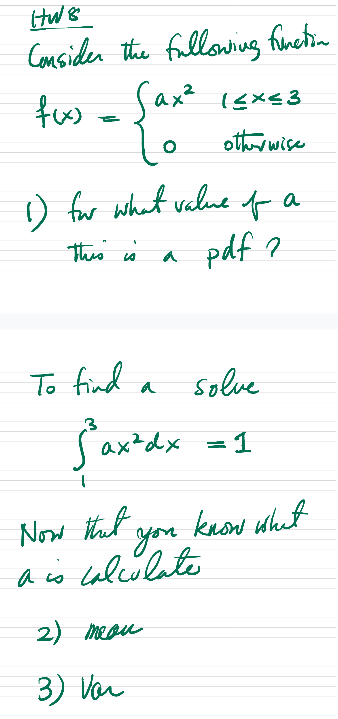 HW 8
Consider the following function
f(x) = { ax² 1≤x≤3
0 otherwise
1) for what value of a
this is a pdf?
To find a solve
∫₁³ ax²dx = 1
Now that you know what
a is calculate
2) mean
3) Var